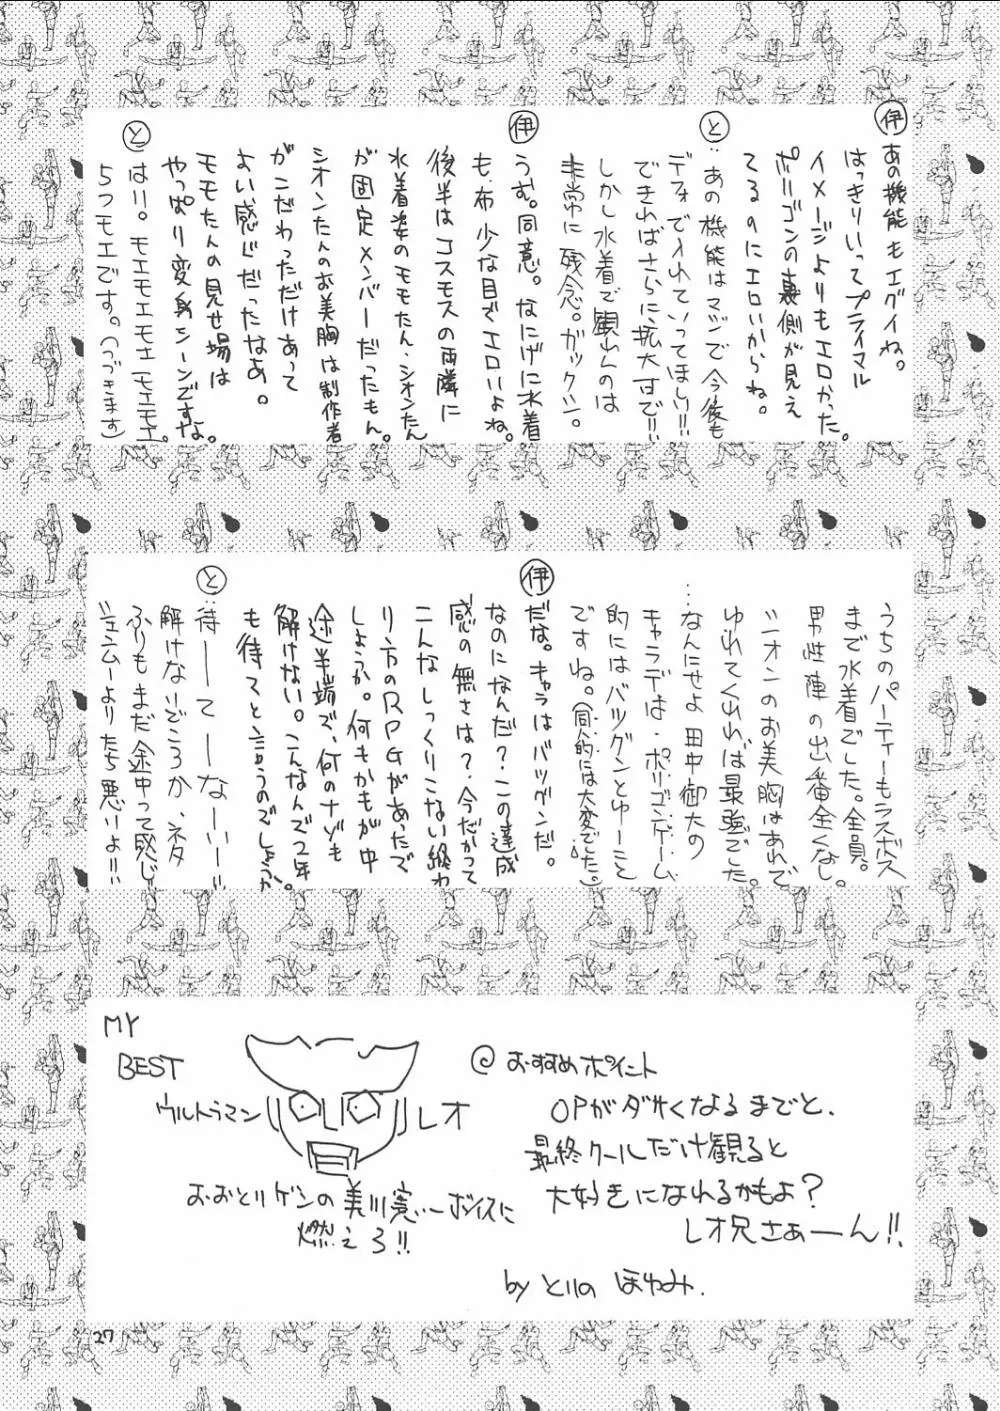 伊
あの機能もエグイね。
はっきりいってプライマル
イメージよりもエロかった。
ポリゴンの裏側が見え
てるのにエロいからね。
と
:あの機能はマジで今後も
デフォで入れていってほしい!!
できればさらに拡大すで!!!
しかし水着で観れんのは
非常に残念。ガックシ。
伊
うむ。同意。なにげに水着
も、布少な目でエロいよね。
後半はコスモスの両隣に
水着姿のモモたん・シオンたん
が固定メンバーだったもん。
シオンたんのお美胸は制作者
がこだわっただけあって
よい感じだったなあ。
モモたんの見せ場は
やっぱり変身シーンですな。
と
はい。モエモエモエモエモエ。
5つモエです。(つづきます)
うちのパーティーもラスボス
まで水着でした。全員。
男性陣の出番全くなし。
シオンのお美胸はあれで
ゆれてくれれば最強でした。
…なんにせよ田中御大の
キャラデは・ポリゴンゲーム
的にはバツグンとゆーこと
ですね。(同人的には大変でした。)
伊
だな。キャラはバツグンだ。
なのになんだ?この達成
感の無さは?今だかって
こんなしっくりこない終わ
り方のRPGがあったで
しょうか。何もかもが中
途半端で、何のナゾも
解けない。こんなんで2年
も待てと言うのでしょうか。
と
:待ーーてーーなーいー!!
解けないどころか、ネタ
ふりもまだ途中って感じ!
シェンムーよりたち悪いよ!!
MY
BEST
ウルトラマン レオ
おおとりゲンの美川寛ーボイスに
燃えろ!!
@おすすめポイント
OPがダサくなるまでと、
最終クールだけ観ると
大好きになれるかもよ?
レオ兄さぁーん!!
by とりの ほわみ.
27